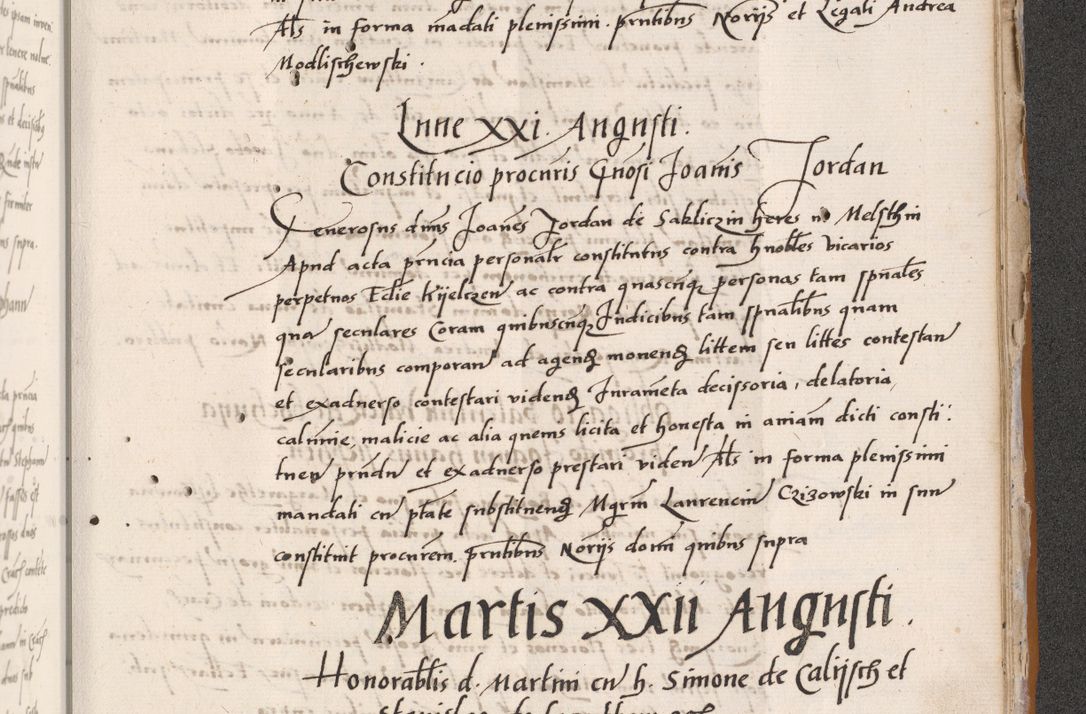 Als in forma madati plenissimi. prntibus Norijs et Legali Andrea
Modlischewski.
Lune XXI. Augusti.
Constitucio procuris Gnosi Joanis Jordan
Generosus dnus Joanes Jordan de Sakliczin heres in Melsthin
Apud acta prncia personalr constitutus contra hnobles vicarios
perpetuos Eclie Kijelczen ac contra quascunq personas tam spuales
qua seculares Coram quibuscunq Judicibus tam spualibus quam
secularibus comporan ad agend monend littem seu littes contestan
et exaduerso contestari vidend Jurameta decissoria, delatoria,
calunie, malicie ac alia quemis licita et honesta in aniam dicti consti:
tuen prnd et exaduerso prestari viden Als in forma plenissimi
mandati cu ptate substituend Mgrm Laurenciu Czizowski in suu
constituit procurem. prntibus Norijs domi quibus supra
Martis XXII Augusti.
Honorablis d. Martini cu h. Simone de Calijsch et